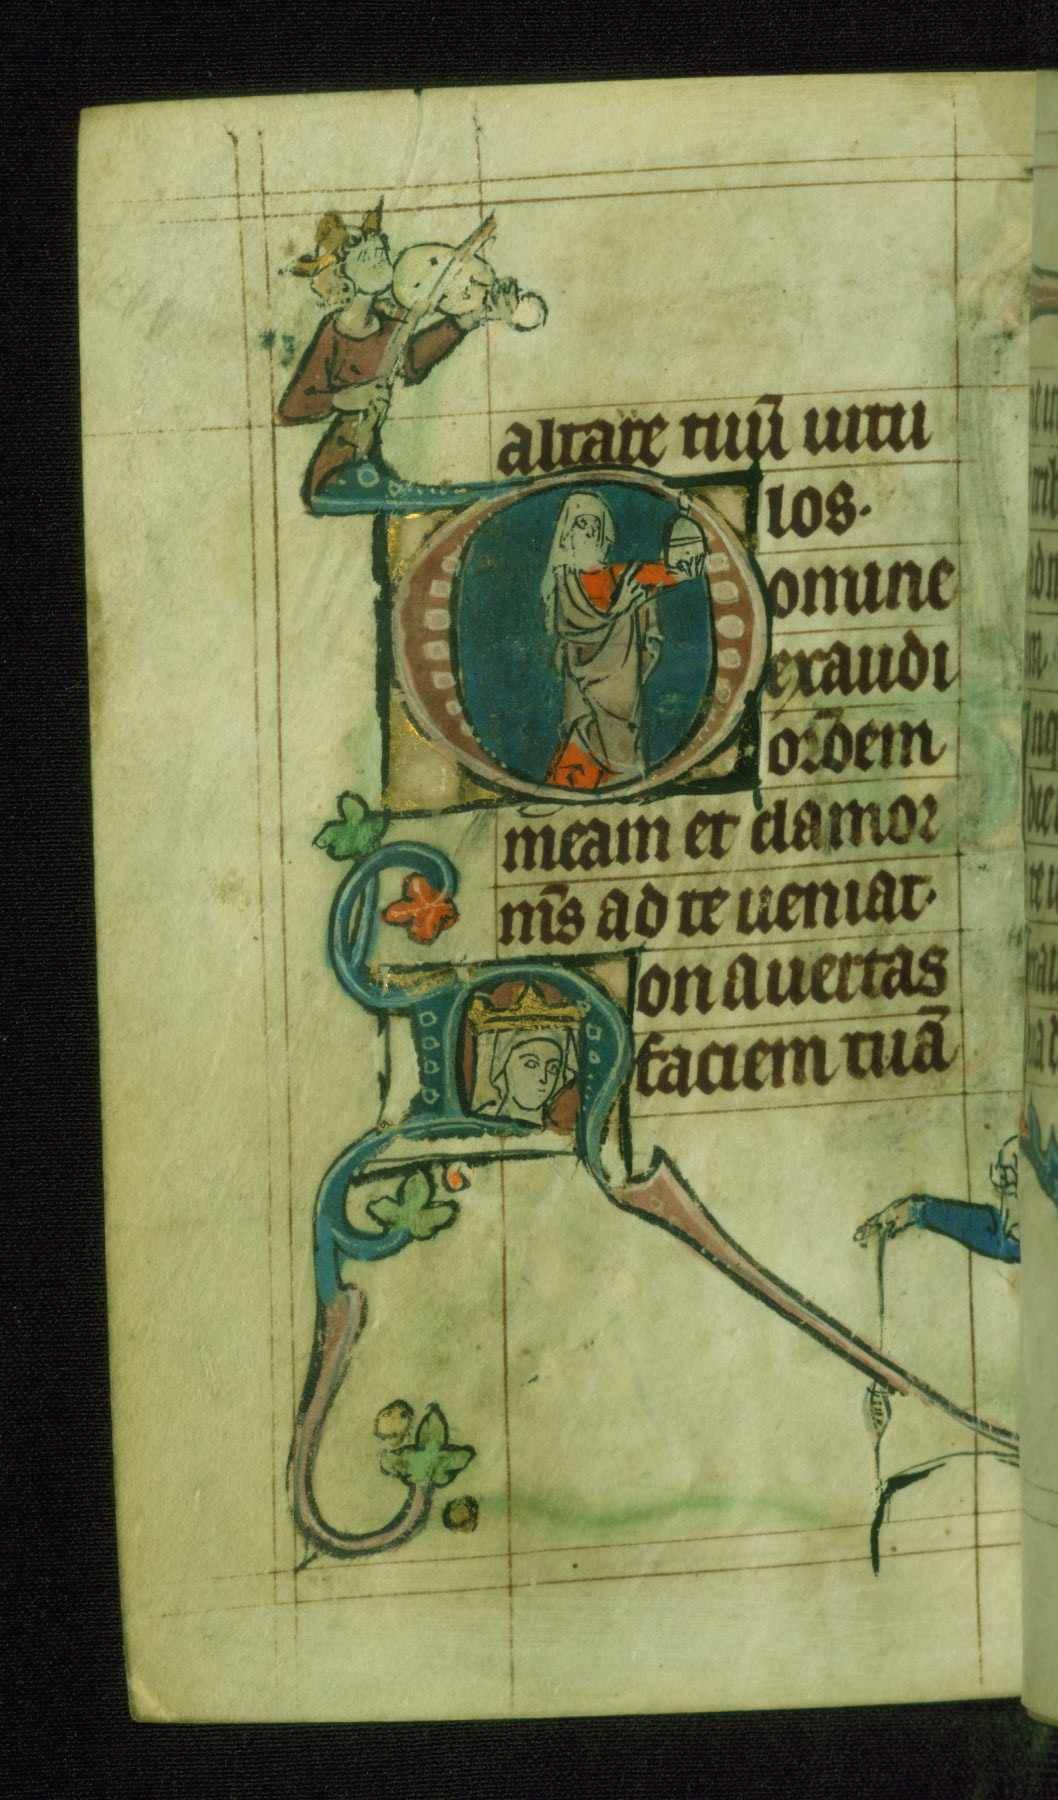 altare tuũ uitu
los.
omine
exaudi
or̃oem
meam et clamor
m̃s ad te ueniat.
on auertas
faciem tuã